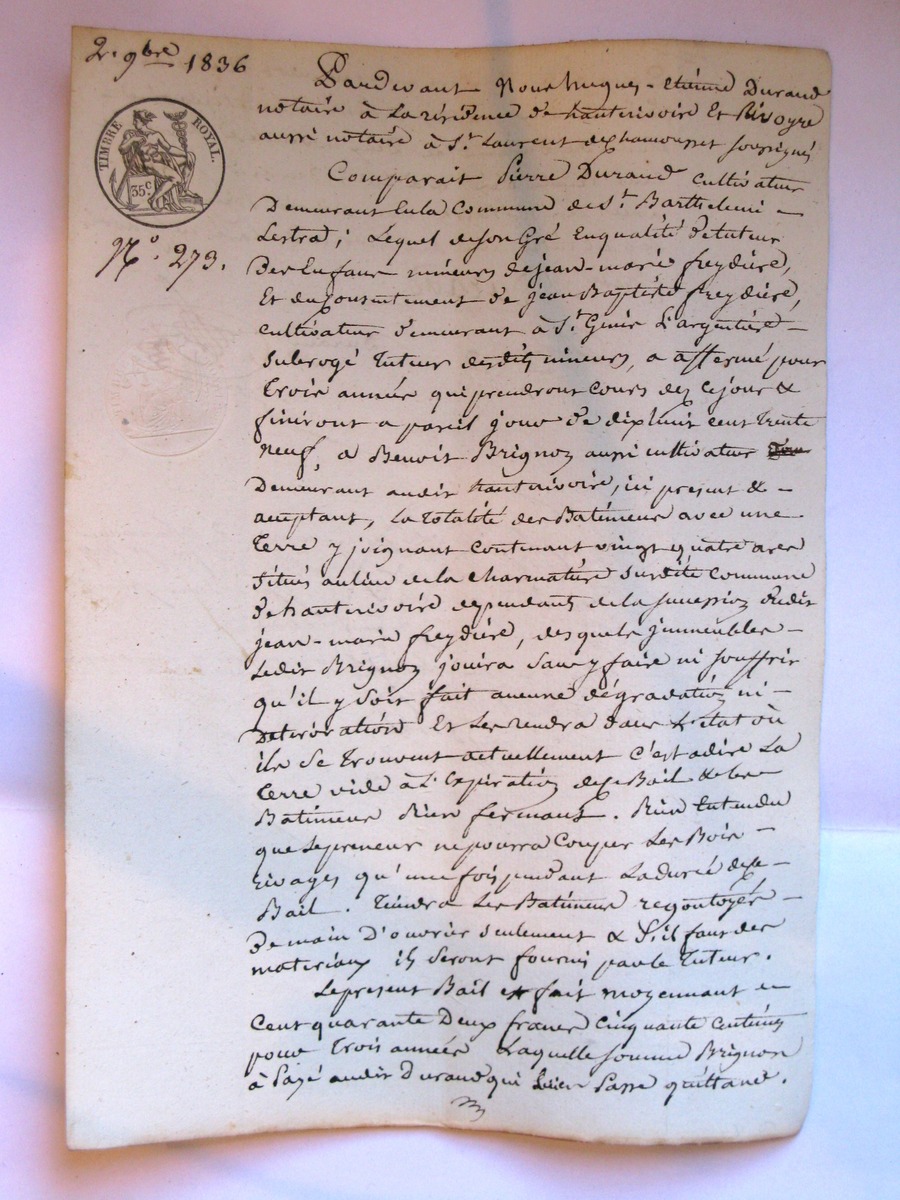 2. 9bre 1836
TIMBRE ROYAL.
35c
No. 273.
Pardevant Nous hugues-etiénne Durand
notaire à La résidence de hauterivoire Et Rivoyre
aussi notaire à St. Laurent de chamousset soussignés
Comparait Pierre Durand cultivateur
Demeurant En la Commune de St. Barthelemi-
Lestra; Lequel de son Gré En qualité de tuteur
Des Enfans mineurs de jean-marie freydiere,
Et du Consentement de jean Baptiste freydière,
cultivateur demeurant à St. Genis L'argentiére
subrogé tuteur desdits mineurs, a affermé pour
trois année qui prendront Cours dez ce jour &
finiront a pareil jour de dix huit cent trente
neuf, a Benoit Brignon aussi cultivateur
Demeurant audit hauterivoire, ici present &
acceptant, La totalité des Batimens avec une
terre y joignant Contenant vingt quatre ares
situés au lieu de la Charmature Surdite Commune
de hauterivoire dependants de la succession dudit
jean-marie freydiére, desquels immeubles
Ledit Brignon jouira sans y faire ni souffrir
qu'il y soit fait aucune dégradation ni
Deterioration Et Les rendra dans L'état où
ils se trouvent actuellement c'est adire La
terre vide à L'Expiration de ce Bail & les
Batimens Bien fermans. Bien Entendu
que Le preneur ne pourra Couper Les Bois
rivages qu'une fois pendant La durée de ce
Bail. tiendra Les Batimens regoutoyés
De main D'ouvrier seulement & s'il faut des
materiaux ils seront fournis par le tuteur.
Le present Bail est fait moyennant
Cent quarante Deux francs Cinquante Centimes
pour trois années Laquelle somme Brignon
à Payé audit Durand qui Lui en Passe quittance.